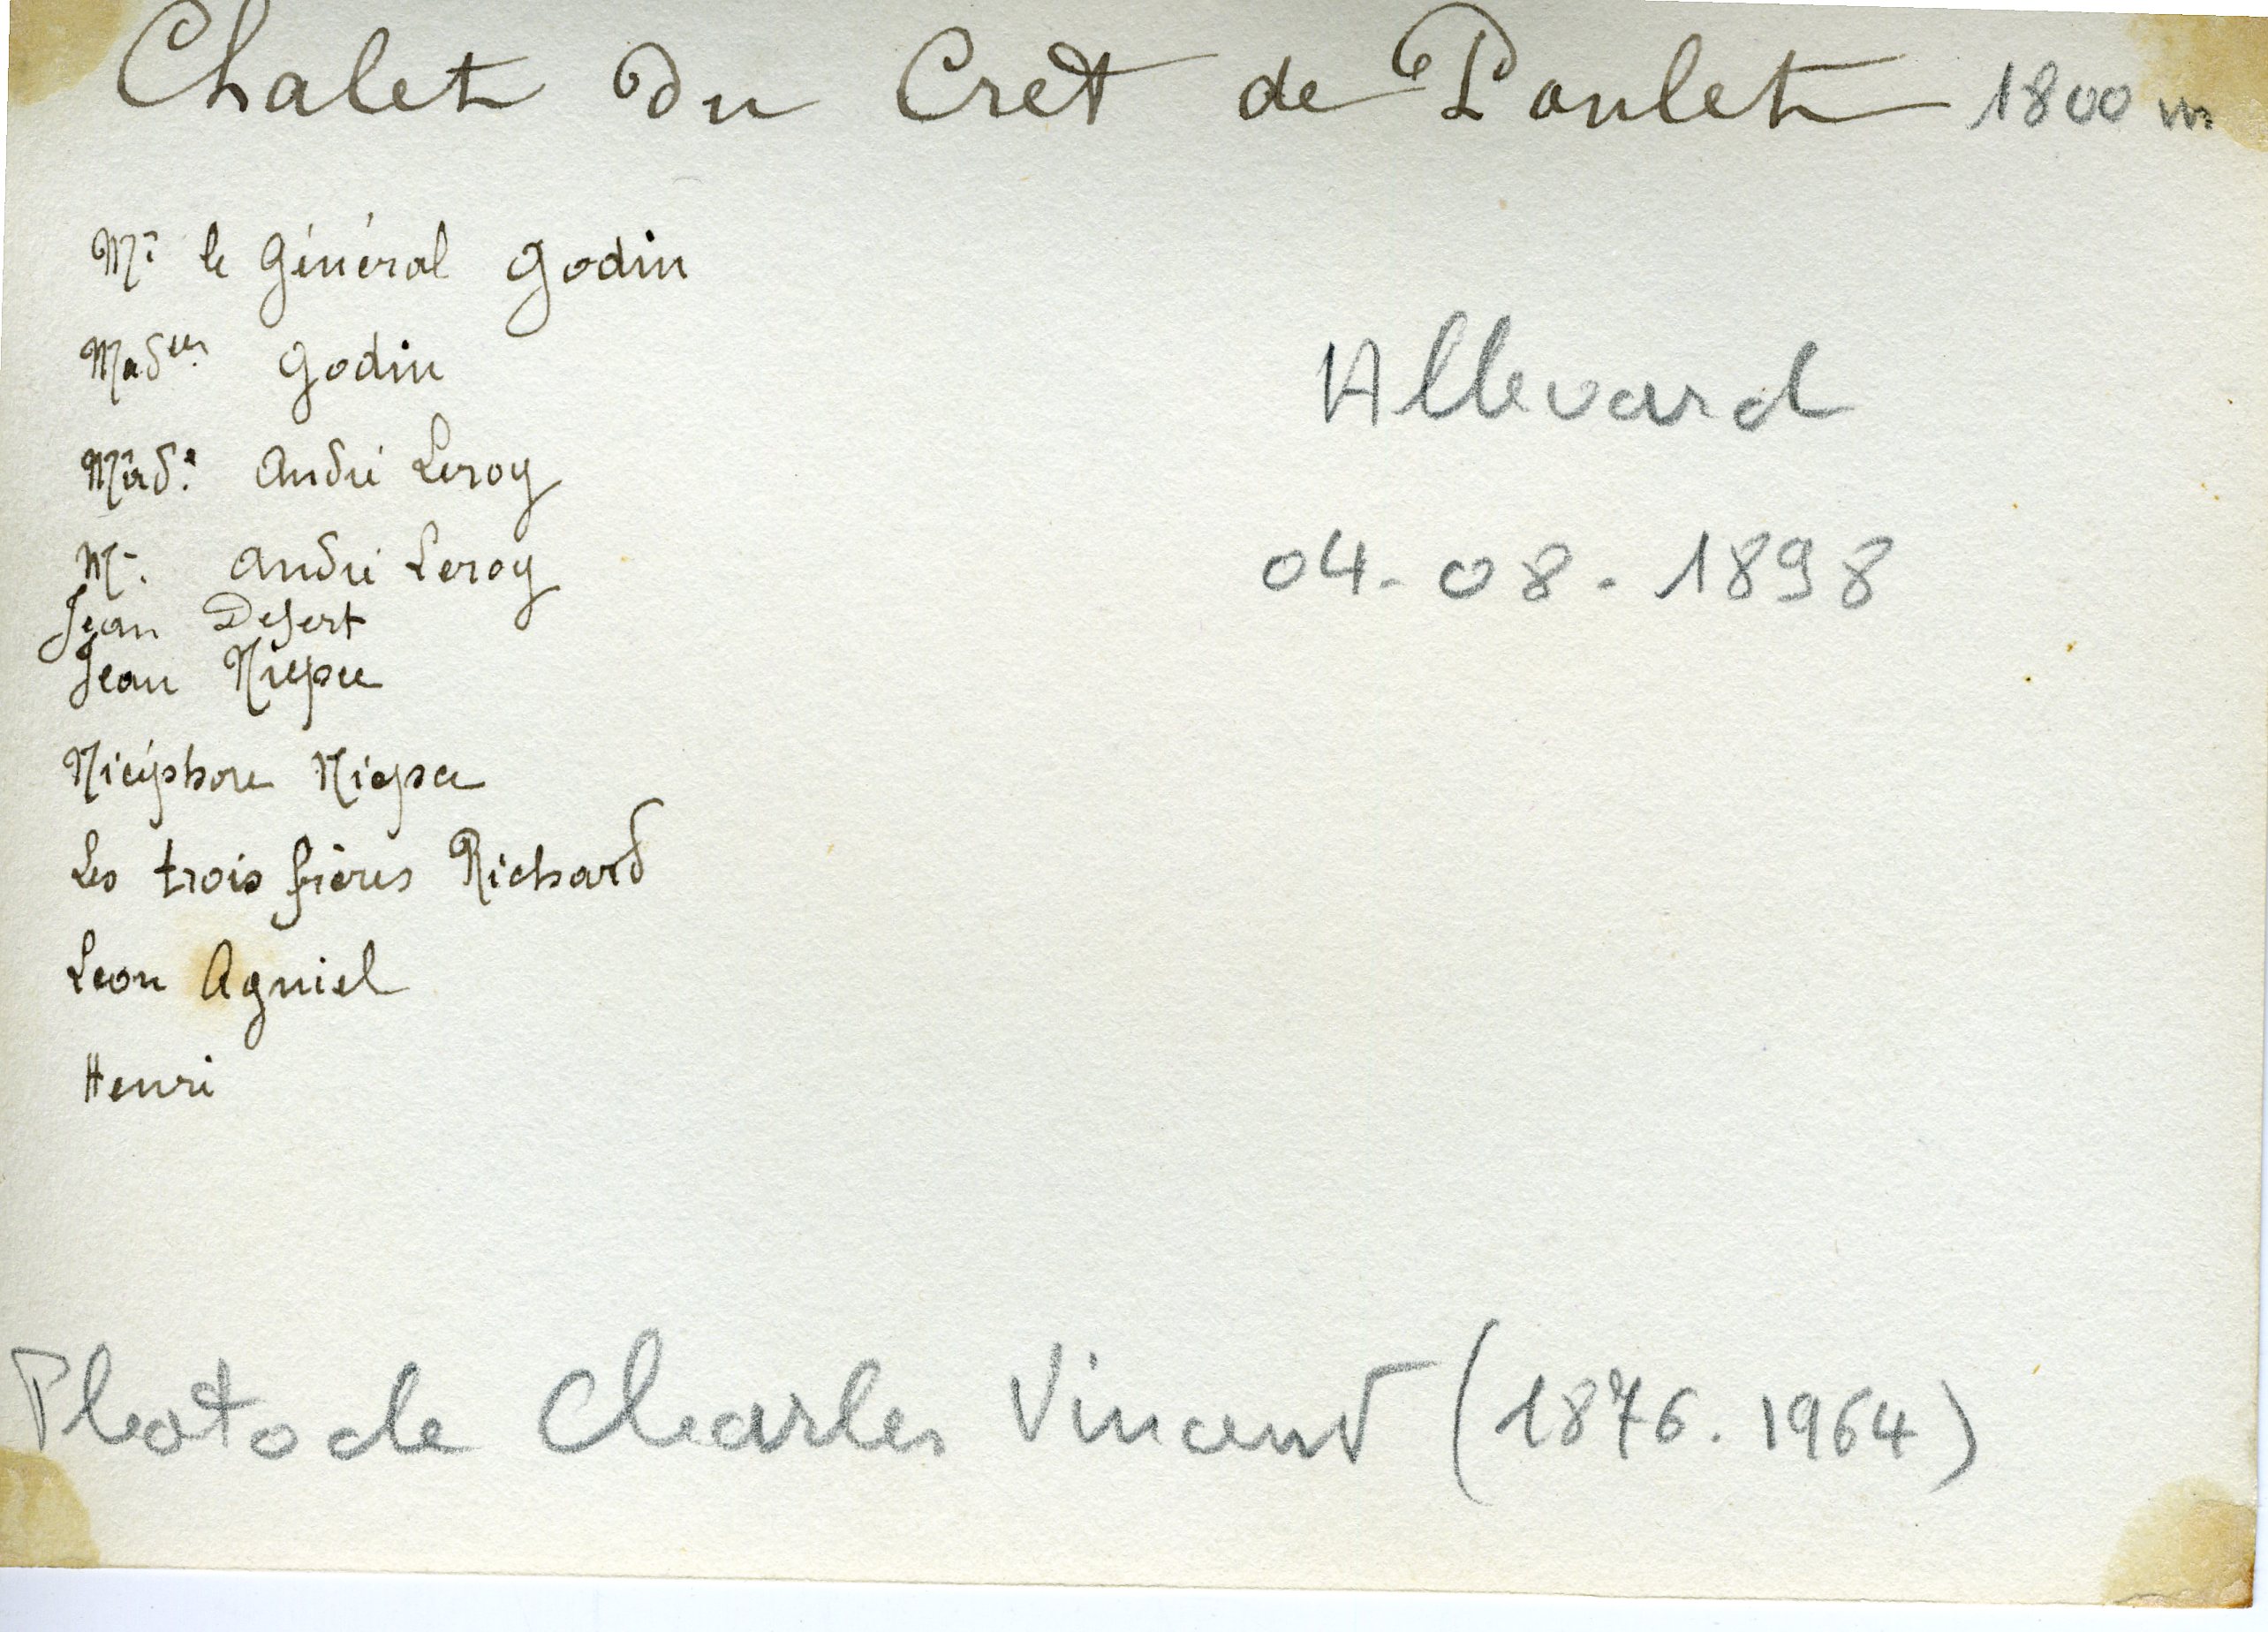 Chalet du Cret de Poulet 1800 m
Mr le Général Godin
Mad^elles Godin
Mad^e André Leroy
Allevard
Mr. André Leroy
04-08-1898
Jean Desert
Jean Niepce
Nicéphore Niepce
Les trois frères Richard
Léon Agniel
Henri
Photo de Charles Vincent (1876.1964)